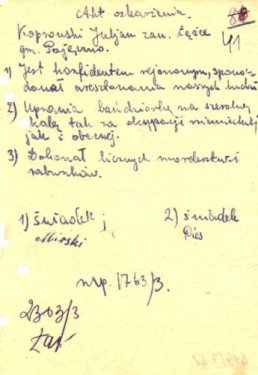 Akt oskarżenia.
41
Koprowski Juljan zam. Łężce
gm. Pajęczno.
1) Jest konfidentem rejonowym, spowo-
dował aresztowania naszych ludzi
2) Uprawia bandziorkę na szeroką
skalę tak za okupacji niemieckiej
jak i obecnej.
3) Dokonał licznych morderstw i
rabunków.
1) świadek j 2) świadek
Mirski Pies
nrp. 1763/3.
2303/3